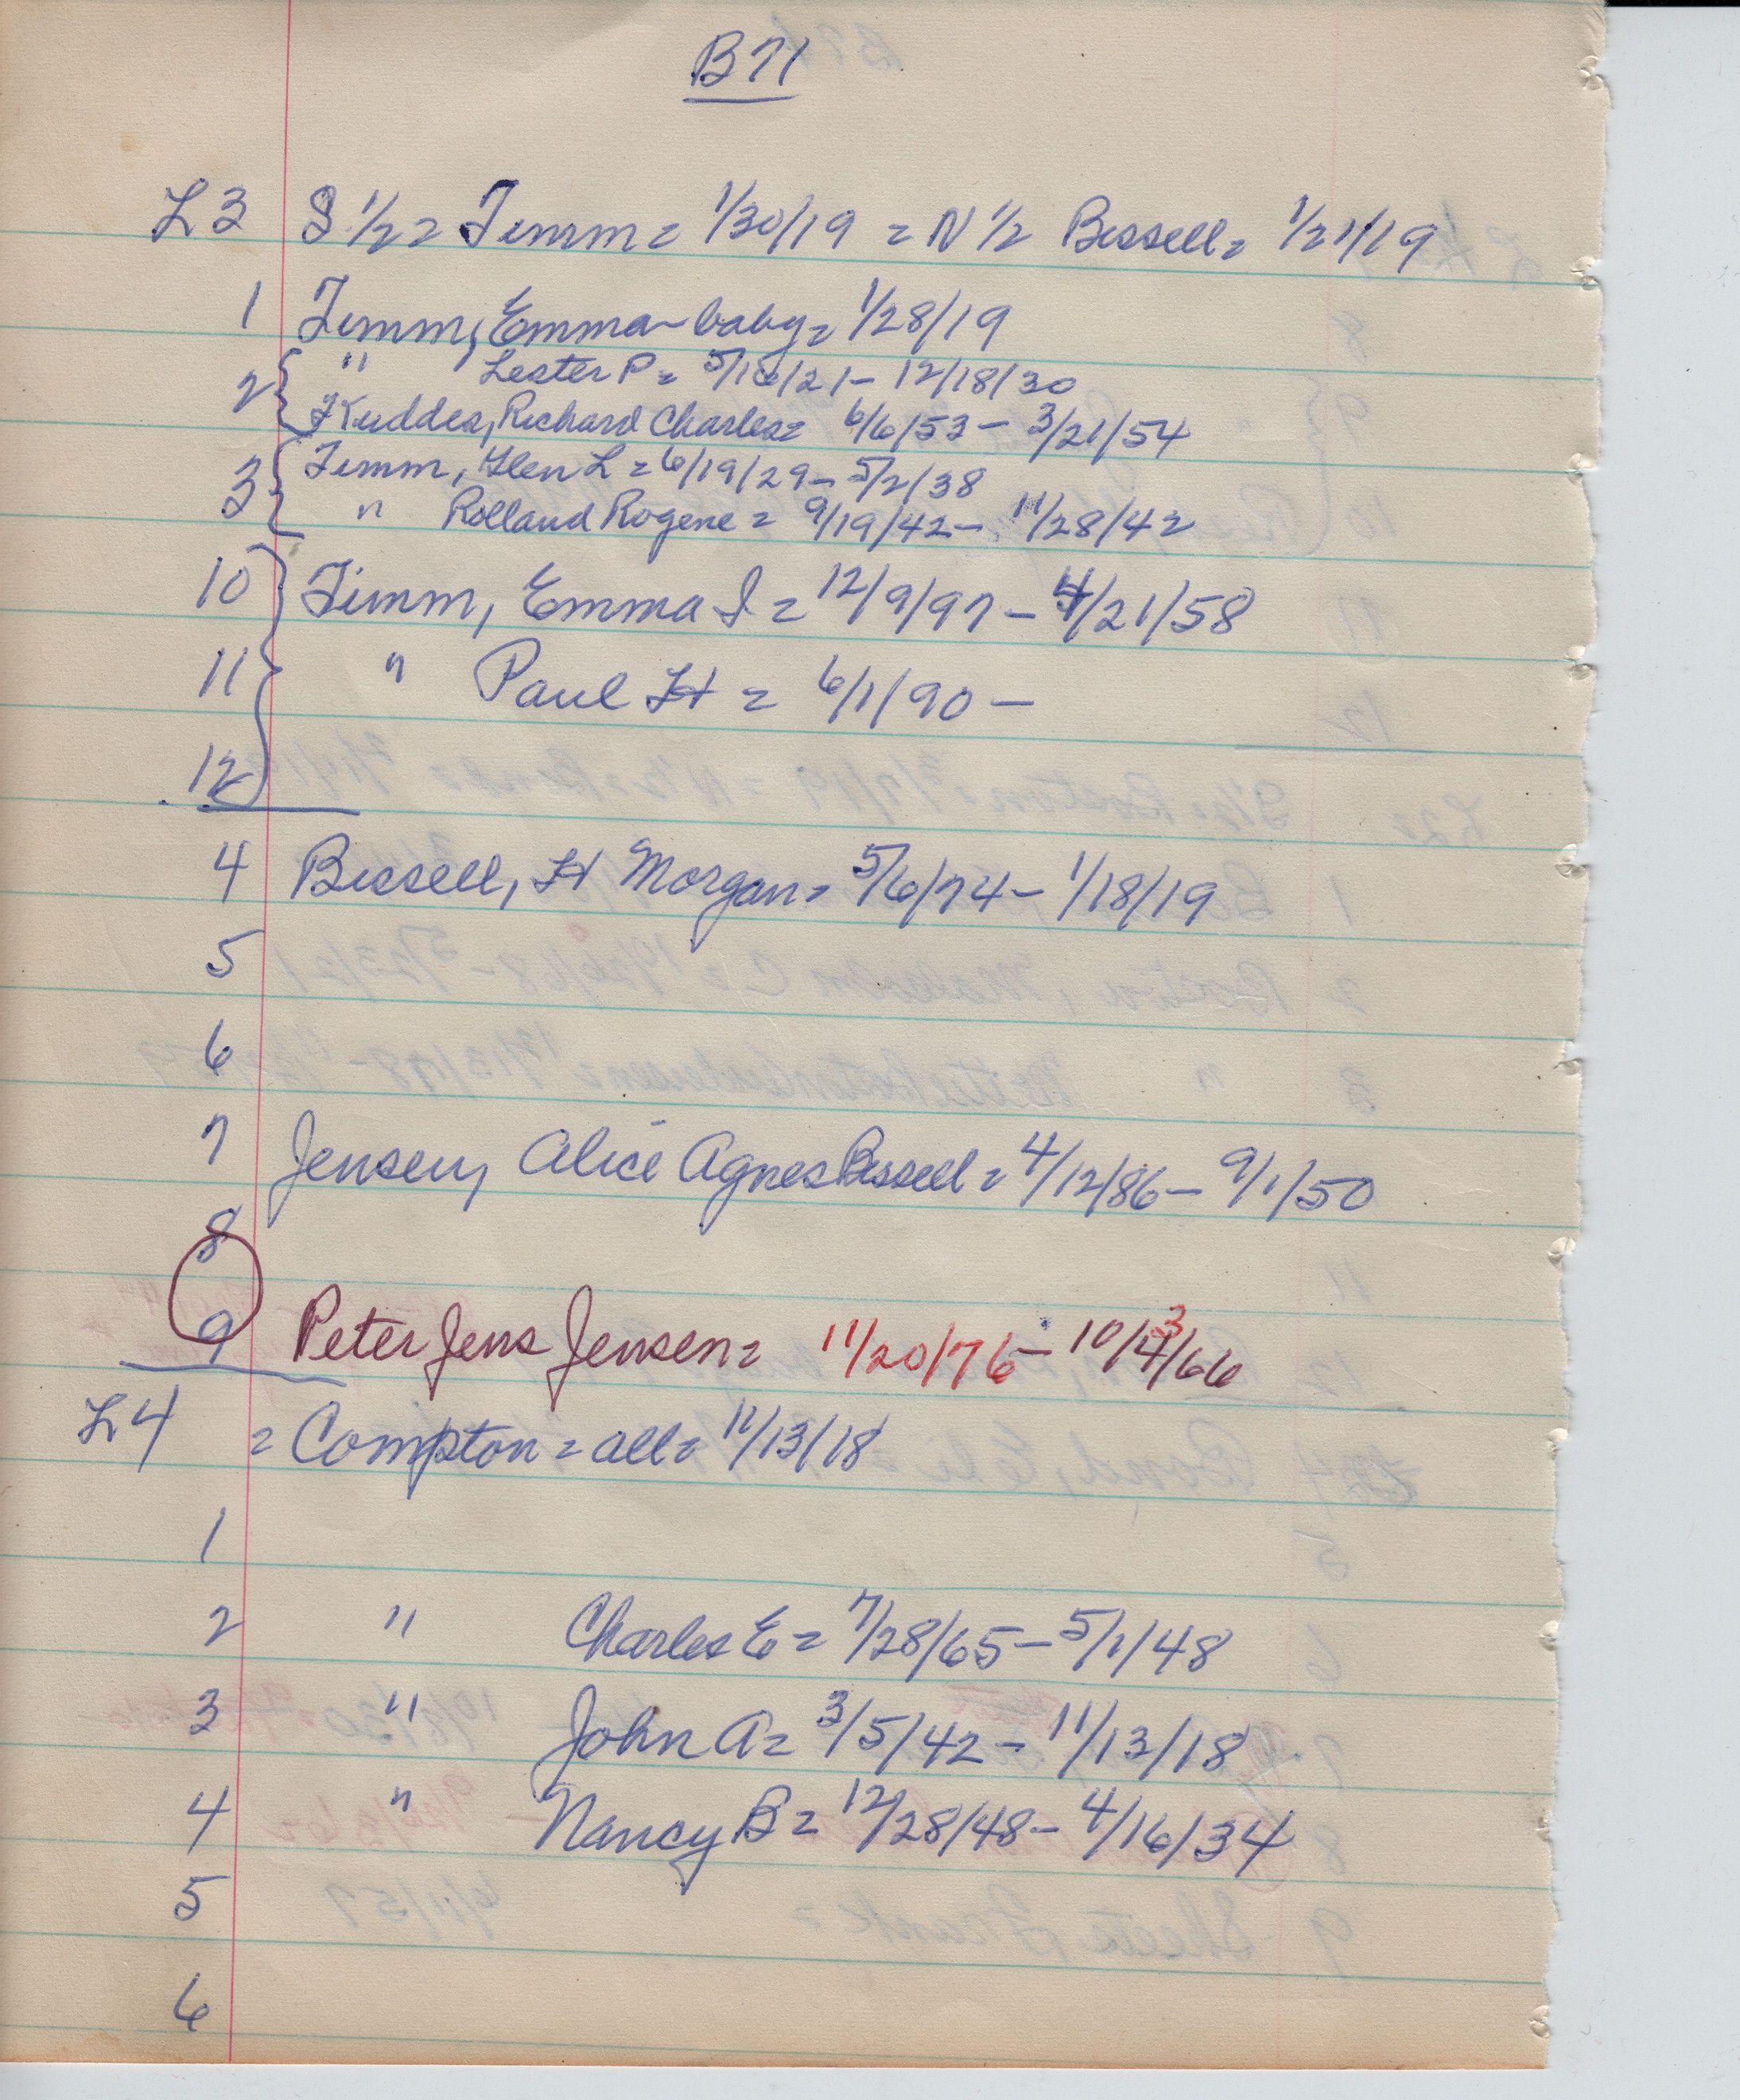 B71
L3 S 1/2 = Timm = 1/30/19 = N 1/2 Bissell = 1/21/19
1 Timm, Emma - baby = 1/28/19
2 { " Lester P = 5/16/21 - 12/18/30
Kuddes, Richard Charles = 6/6/53 - 3/21/54
3 { Timm, Glen L = 6/19/29 - 5/2/38
" Rolland Rogene = 9/19/42 - 11/28/42
10 } Timm, Emma I = 12/9/97 - 4/21/58
11 } " Paul H = 6/1/90 -
12 }
4 Bissell, H Morgan = 5/6/74 - 1/18/19
5
6
7 Jensen, Alice Agnes Bissell = 4/12/86 - 9/1/50
8
9 Peter Jens Jensen = 11/20/76 - 10/3/66
L4 = Compton = all = 11/13/18
1
2 " Charles E = 7/28/65 - 5/1/48
3 " John A = 3/5/42 - 11/13/18
4 " Nancy B = 12/28/48 - 4/16/34
5
6